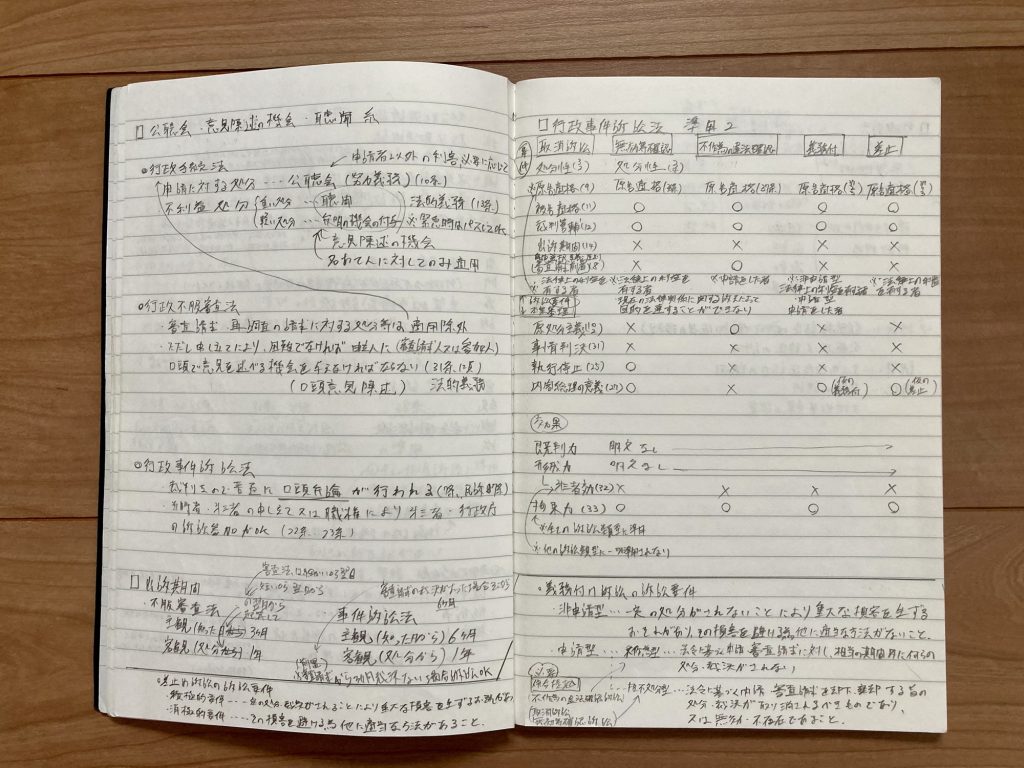 公聴会・意見陳述の機会・聴聞系
○行政手続法
申請者以外の利害
申請に対する処分 … 公聴会 (努力義務) (10条)
不利益処分 重い処分 … 聴聞 法的義務 (13条)
軽い処分 … 弁明の機会の付与 ※緊急時は
意見陳述の機会
名あて人に対してのみ適用
○行政不服審査法
・審査請求・再調査の請求に対する処分等は適用除外
・ただし申し立てにより、困難でなければ申立人に (審査請求人又は参加人)
口頭で意見を述べる機会を与えなければならない (31条1項)
(口頭意見陳述) 法的義務
○行政事件訴訟法
裁判なので普通に口頭弁論が行われる (7条、民訴
・当事者・第三者の申し立て又は職権により第三者・行政庁
の訴訟参加がOK (22条、23条)
出訴期間
不服審査法
翌日から
起算して
主観 (知った日 3ヶ月
客観 (処分から) 1年
事件訴訟法
6ヶ月
主観 (知った日から) 6ヶ月
客観 (処分から) 1年
・差止め訴訟の訴訟要件
積極的要件 … 一定の処分・裁決がされることにより重大な損害を生ずるおそれがあり、
消極的要件 … その損害を避ける為他に適当な方法があること。
行政事件訴訟法 準用2
要件 取消訴訟 無効等確認 不作為の違法確認 義務付 差止
処分性 (3) 処分性 (3)
原告適格 (9) 原告適格 (36条) 原告適格 (37条) 原告適格 原告適格
被告適格 (11) ○ ○ ○ ○
裁判管轄 (12) ○ ○ ○ ○
出訴期間 (14) × × × ×
審査請求前置 (8) × ○ × ×
・法律上の利益を有する者 ※法律上の利益を有する者 ※申請をした者 ※非申請型 ※法律上の利益を有する者
法律上の利益を有する者
現在の法律関係に関する訴えによって 申請型
目的を達することができない 申請をした者
原処分主義 (10) × ○ × ×
事情判決 (31) × × × ×
執行停止 (25) ○ × × ×
内閣総理の異議 (27) ○ × ○ (仮の義務付) ○ (仮の差止)
効果
既判力 明文なし
形成力 明文なし
第三者効 (32) × × × ×
拘束力 (33) ○ ○ ○ ○
※他の訴訟類型に一切準用されない
・義務付け訴訟の訴訟要件
・非申請型 … 一定の処分がされないことにより重大な損害を生ずる
おそれがあり、その損害を避ける為、他に適当な方法がないこと。
・申請型 … 不作為型 … 法令に基づく申請、審査請求に対し、相当の期間内に何らの
処分・裁決がされない
必要
併合提起
不作為の違法確認訴訟
取消訴訟
無効等確認訴訟
拒否処分型 … 法令に基づく申請、審査請求を却下、棄却する旨の
処分・裁決が取り消されるべきものであり、
又は無効か不存在であること。